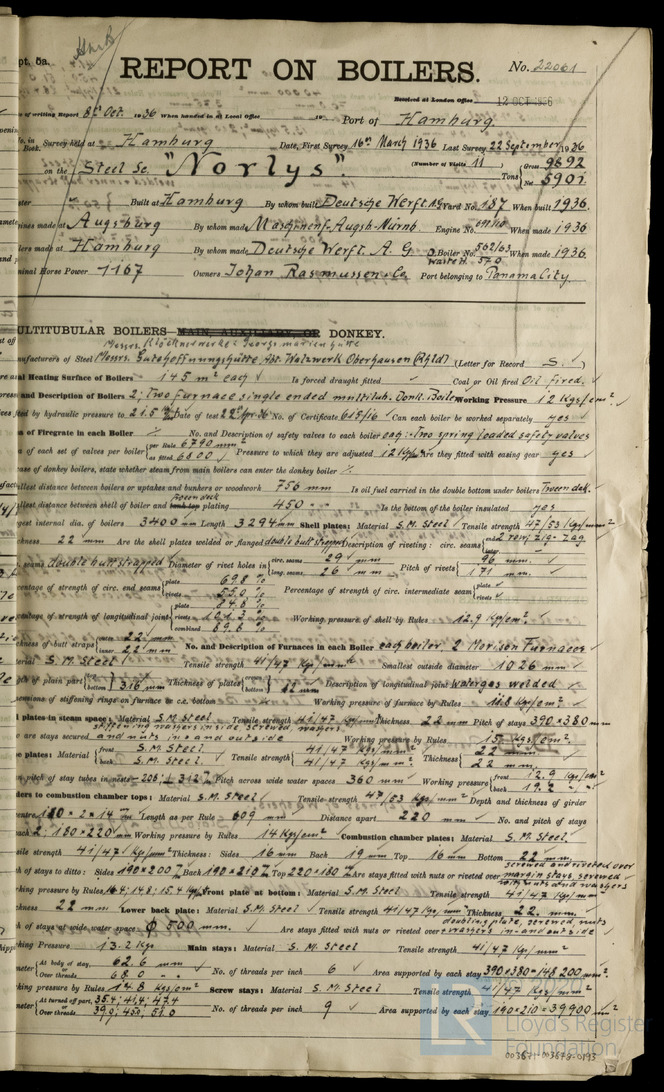 pt. 5a.
REPORT ON BOILERS.
No. 22061
Received at London Office 12 OCT 1936
of writing Report 8th Oct. 1936 When handed in at Local Office 19 Port of Hamburg
Survey held at Hamburg Date, First Survey 16th March 1936 Last Survey 22 September 1936
Book.
(Number of Visits 11)
on the Steel Sc. "Norlys". Tons { Gross 9892
Net 5901
Built at Hamburg By whom built Deutsche Werft AG Yard No. 187 When built 1936.
ines made at Augsburg By whom made Maschinenf. Augsb-Nürnb. Engine No. When made 1936
lers made at Hamburg By whom made Deutsche Werft. A. G. Boiler No. 562/63 When made 1936.
570
minal Horse Power 1167 Owners Johan Rasmussen & Co. Port belonging to Panama City.
ULTITUBULAR BOILERS MAIN, AUXILIARY, OR DONKEY.
Messrs. Klöcknerwerke Georgsmarienhütte
nufacturers of Steel Messrs. Gutehoffnungshütte Abt. Walzwerk Oberhausen (Rhld) (Letter for Record S.)
Heating Surface of Boilers 145 m² each Is forced draught fitted Coal or Oil fired Oil fired.
and Description of Boilers 2; Two furnace single ended multitub. Donk. Boiler Working Pressure 12 Kgs/cm²
ed by hydraulic pressure to 21.5 Date of test No. of Certificate 615/16 Can each boiler be worked separately yes
of Firegrate in each Boiler ∕. No. and Description of safety valves to each boiler each: Two spring loaded safety valves
of each set of valves per boiler { per Rule 6790 mm
as fitted 6800 Pressure to which they are adjusted 12 Kg/cm² Are they fitted with easing gear yes
ase of donkey boilers, state whether steam from main boilers can enter the donkey boiler ∕.
llest distance between boilers or uptakes and bunkers or woodwork 756 mm Is oil fuel carried in the double bottom under boilers Tween dek.
llest distance between shell of boiler and tank top plating 450 Is the bottom of the boiler insulated yes
gest internal dia. of boilers 3400 mm Length 3294 mm Shell plates: Material S.M. Steel Tensile strength 47/53 Kg/mm²
ckness 22 mm Are the shell plates welded or flanged double butt strapped Description of riveting: circ. seams { end 2 row, zig-zag
inter.
seams double butt strapped Diameter of rivet holes in { circ. seams 29 mm
long. seams 26 mm Pitch of rivets { 96 mm.
171 mm.
centage of strength of circ. end seams { plate 69.8 %
rivets Percentage of strength of circ. intermediate seam { plate
rivets
centage of strength of longitudinal joint { plate
rivets
combined Working pressure of shell by Rules 12.9 Kg/cm².
ckness of butt straps { outer 22 mm
inner 22 mm No. and Description of Furnaces in each Boiler each boiler, 2 Morison Furnaces
erial S. M. Steel Tensile strength 41/47 Kg/mm² Smallest outside diameter 1026 mm
gth of plain part { top
bottom Thickness of plates { crown
bottom 12 mm Description of longitudinal joint Watergas welded
ensions of stiffening rings on furnace or c.c. bottom Working pressure of furnace by Rules Kg/cm².
plates in steam space: Material S.M. Steel Tensile strength 41/47 Kg/mm² Thickness 22 mm Pitch of stays 390×380 mm
are stays secured and nuts in and outside Working pressure by Rules 15. Kgs/cm².
e plates: Material { front S.M. Steel.
back S.M. Steel. Tensile strength { 41/47 Kg/mm²
41/47 Kg/mm² Thickness { 22 mm
22 mm.
pitch of stay tubes in nests Pitch across wide water spaces 360 mm Working pressure { front 12.9 Kgs/cm²
back 19.2
ders to combustion chamber tops: Material S.M. Steel Tensile strength 47/53 Kg/mm² Depth and thickness of girder
entre 180 × 2 × 14 mm Length as per Rule 609 mm Distance apart 220 mm No. and pitch of stays
ach 2; 180 × 220 mm Working pressure by Rules 14 Kgs/cm² Combustion chamber plates: Material S. M. Steel
sile strength 41/47 Kg/mm² Thickness: Sides 16 mm Back 19 mm Top 16 mm Bottom 22 mm.
h of stays to ditto: Sides 190×200 Back 190×210 Top 220×180 Are stays fitted with nuts or riveted over screwed and riveted over margin stays, screwed with nuts and washers
rking pressure by Rules 16.4; 14.8; 15.4 Kg Front plate at bottom: Material Tensile strength 41/47 Kg/mm²
ckness 22 mm Lower back plate: Material S.M. Steel Tensile strength 41/47 Kg/mm² Thickness 22. mm.
h of stays at wide water space 500 mm. Are stays fitted with nuts or riveted over doubling plate, screwed nuts & washers in and outside
king Pressure 13.2 Kgs Main stays: Material S. M. Steel Tensile strength 41/47 Kg/mm²
meter { At body of stay, 62.6 mm
or
Over threads 68.0 No. of threads per inch 6 Area supported by each stay 390×380=148200 mm²
king pressure by Rules 14.8 Kgs/cm² Screw stays: Material S. M. Steel Tensile strength 41/47 Kg/mm²
meter { At turned off part, 35.4; 41.4; 47.4
or
Over threads 39.0; 45.0; 51.0 No. of threads per inch 9 Area supported by each stay 190×210=39900 mm²
LR
© 2020
Lloyd's Register
Foundation
003671-003679-0193